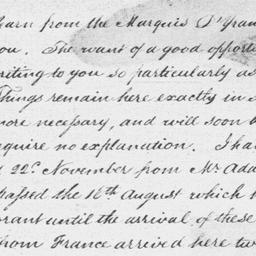 learn from the Marquis D'Yran
you. The want of a good opportu
riting to you so particularly as
Things remain here exactly in
more necessary, and will soon b
equire no explanation. I ha
22d. November from Mr Ada
passed the 16th August which
orant until the arrival of these
from France arrived here tw